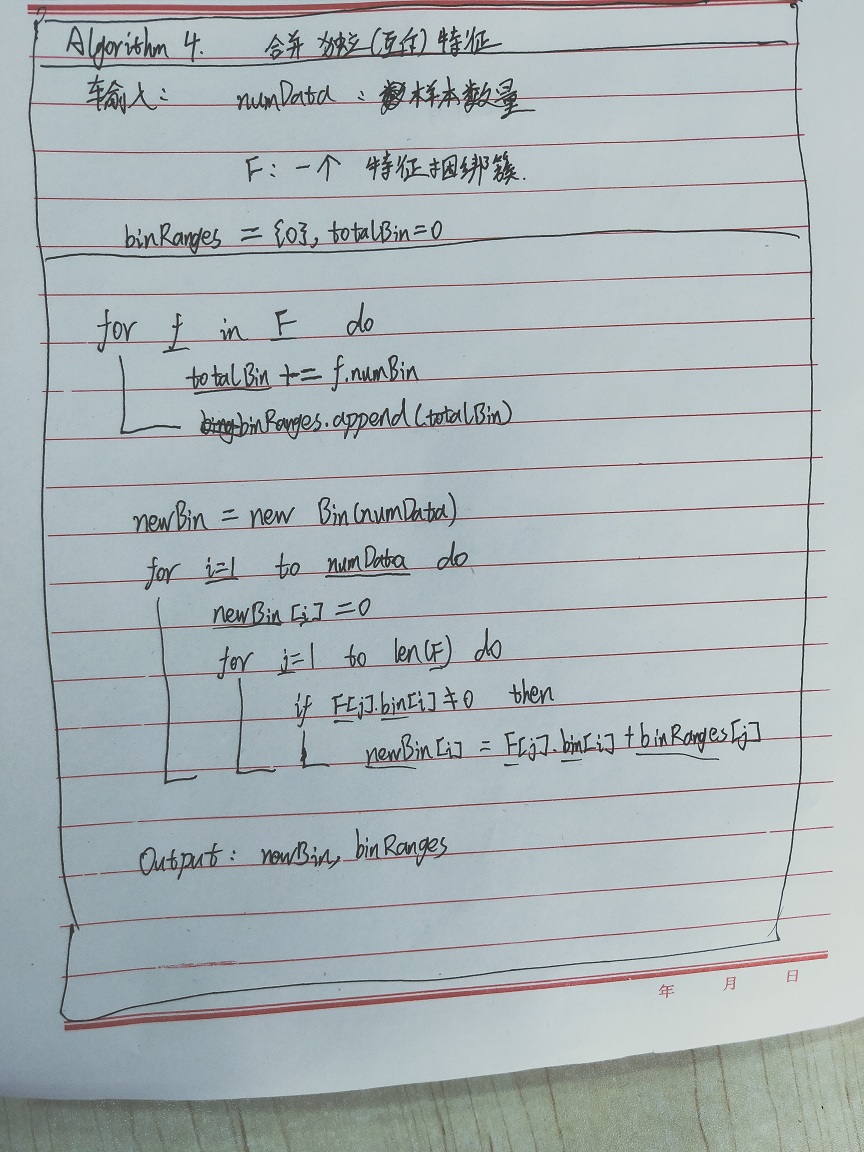 Algorithm 4. 合并 独立(互斥) 特征
输入: numData : 样本数量
F: 一个 特征捆绑簇.
binRanges = {0}, totalBin=0
for f in F do
totalBin += f.numBin
binRanges.append(totalBin)
newBin = new Bin(numData)
for i=1 to numData do
newBin[i] =0
for j=1 to len(F) do
if F[j].bin[i] ≠0 then
newBin[i] = F[j].bin[i] + binRanges[j]
Output: newBin, binRanges
年 月 日